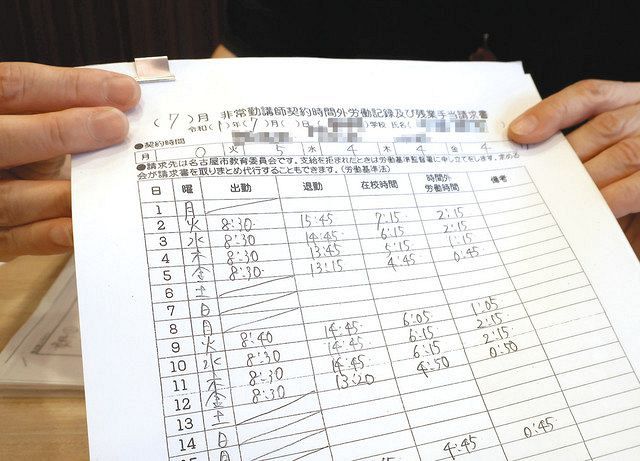 (7)月 非常勤講師契約時間外労働記録及び残業手当請求書
令和(1)年(7)月( )日 学校 氏名(
●契約時間
月 0 火 5 水 4 木 4 金 4
●請求先は名古屋市教育委員会です。支給を拒まれたときは労働基準監督署に申し立てをします。求める
会が請求書を取りまとめ代行することもできます。(労働基準法)
日 曜 出勤 退勤 在校時間 時間外労働時間 備考
1 月
2 火 8:30 15:45 7:15 2:15
3 水 8:30 14:45 6:15 2:15
4 木 8:30 13:45 5:15 1:15
5 金 8:30 13:15 4:45 0:45
6 土
7 日
8 月
9 火 8:40 14:45 6:05 1:05
10 水 8:30 14:45 6:15 2:15
11 木 8:30 14:45 6:15 2:15
12 金 8:30 13:20 4:50 0:50
13 土
14 日
4:45 0:45